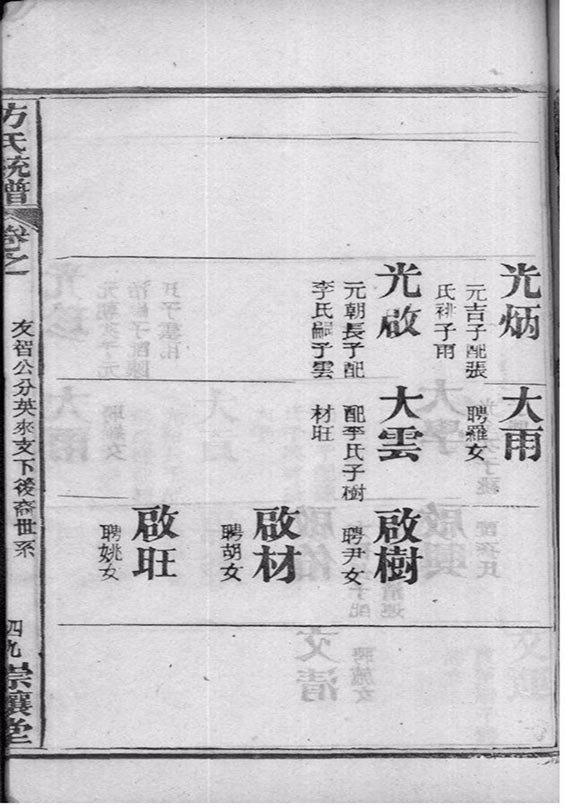 光炳
元吉子配張
氏祧子雨
大雨
聘羅女
光啟
元朝長子配
李氏嗣子雲
大雲
配李氏子樹
材旺
啟樹
聘尹女
啟材
聘胡女
啟旺
聘姚女
方氏統譜
卷之一
友智公分英來支下後裔世系
四九
崇讓堂